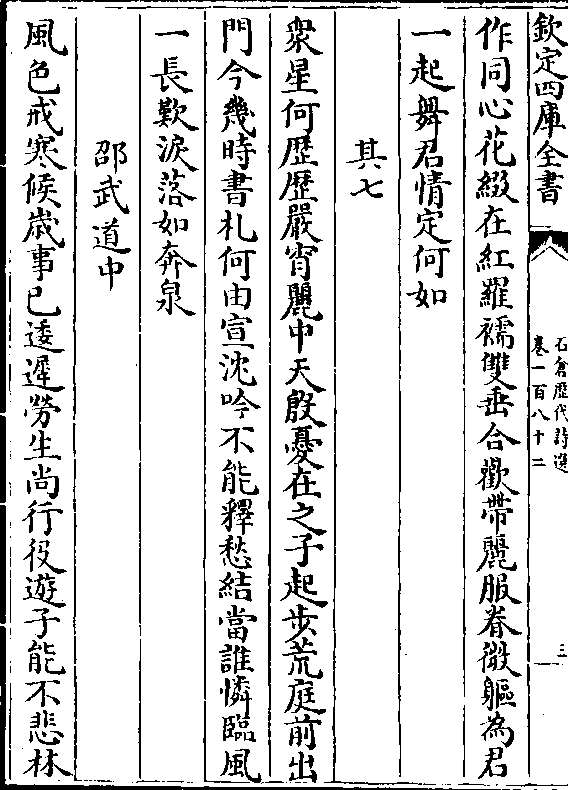 欽定四庫全書
石倉歷代詩選
卷一百八十二
三
作同心花綴在紅羅襦雙垂合歡帶麗服眷微軀為君
一起舞君情定何如
其七
衆星何歴歴嚴宵麗中天殷憂在之子起步荒庭前出
門今幾時書札何由宣沈吟不能釋愁結當誰憐臨風
一長歎淚落如奔泉
邵武道中
風色戒寒候歲事已逶遲勞生尚行役遊子能不悲林